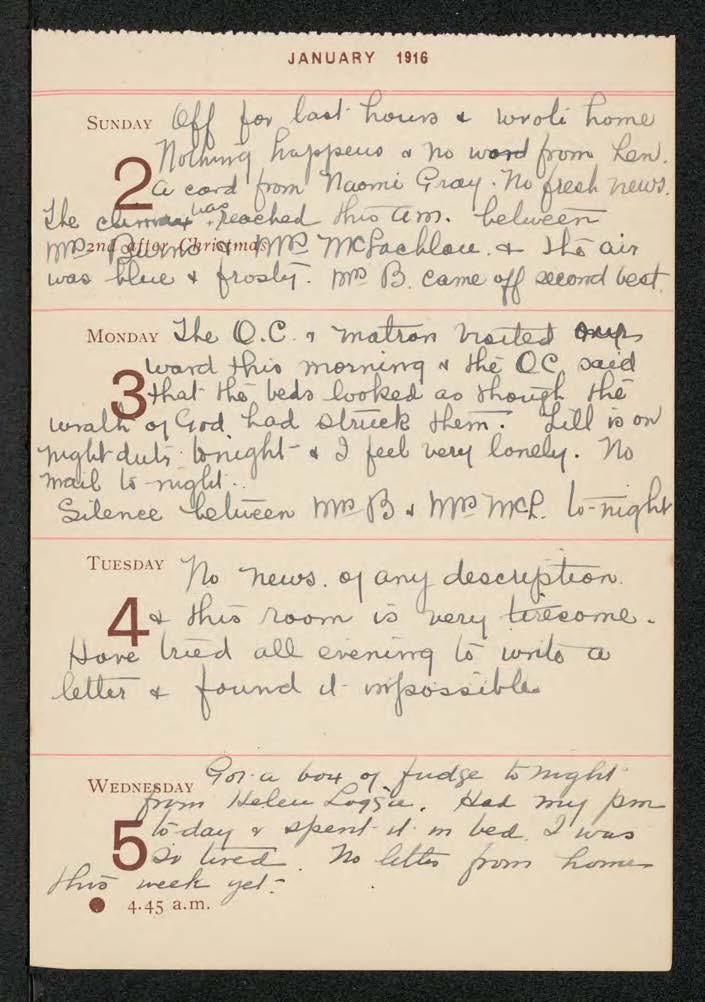 JANUARY 1916
SUNDAY Off for last hours & wrote home
Nothing happens & no word from Len.
2 a card from Naomi Gray. No fresh news.
The climax was reached this a.m. between
2nd after Christmas
Mrs Burns & Mrs McLachlan. & the air
was blue & frosty. Mrs B. came off second best.
MONDAY The O.C. & matron visited our
ward this morning & the OC said
3 that the beds looked as though the
wrath of God had struck them. Lill is on
night duty tonight & I feel very lonely. No
mail to-night..
Silence between Mrs B & Mrs McL. to-night
TUESDAY No news. of any description.
4 & this room is very tiresome.
Have tried all evening to write a
letter & found it impossible
WEDNESDAY Got a box of fudge tonight
from Helen Loggie. Had my pm
5 to-day & spent it in bed. I was
so tired. No letter from home
this week yet.
4.45 a.m.